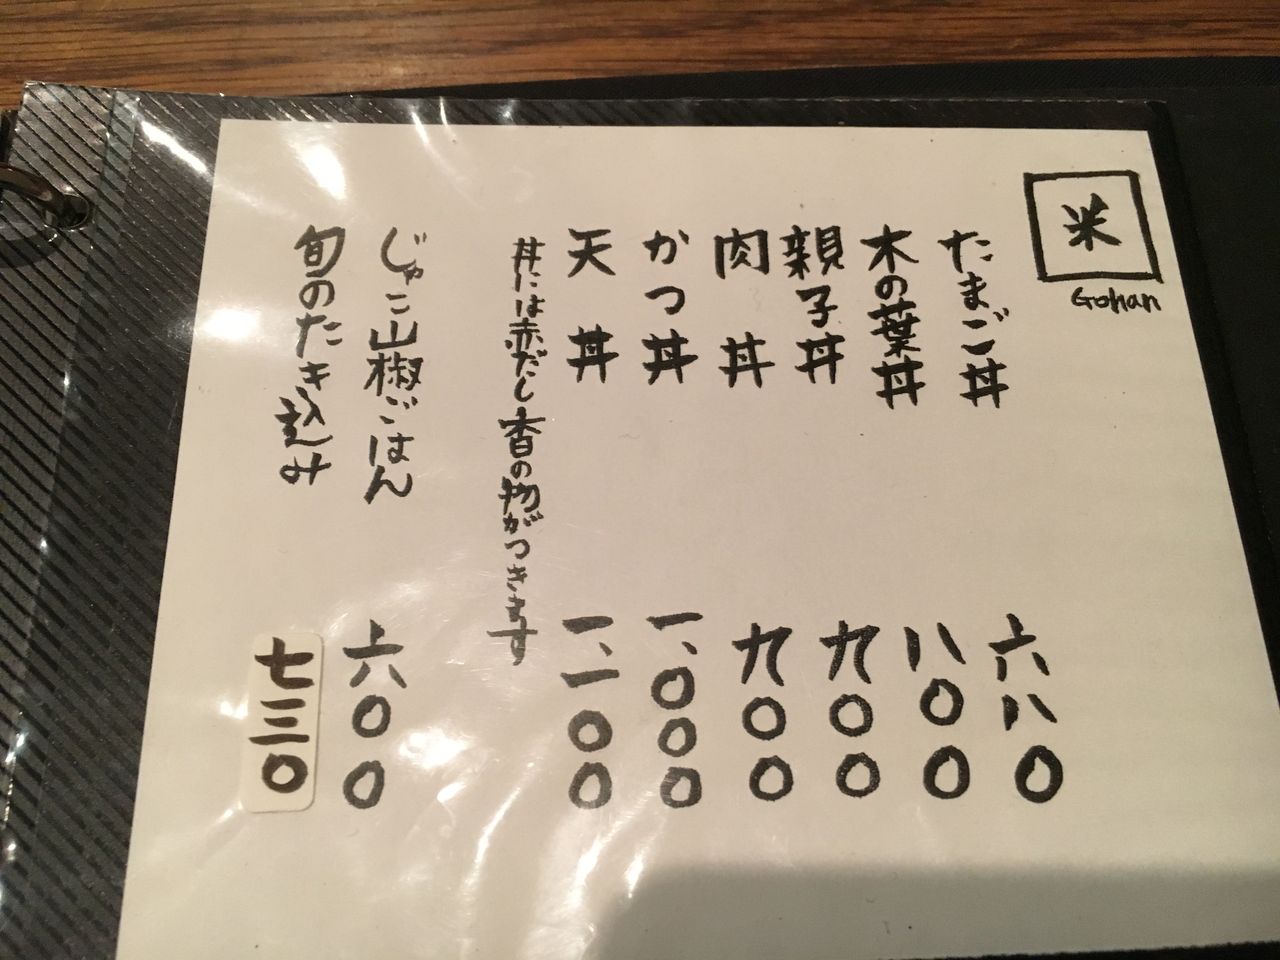 米
Gohan
たまご丼 六八〇
木の葉丼 八〇〇
親子丼 九〇〇
肉丼 九〇〇
かつ丼 一、〇〇〇
天丼 一、一〇〇
丼には赤だし香の物がつきます
じゃこ山椒ごはん 六〇〇
旬のたき込み 七三〇